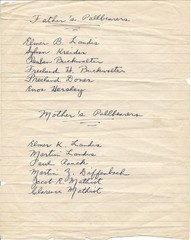 Father's Pallbearers
Elmer B. Landis
Sylvan Kreider
Amber Buckwalter
Freeland H. Buckwalter
Freeland Doner
Enos Hershey
Mother's Pallbearers
Elmer K. Landis
Martin Landis
Paul Ranck
Martin Z. Deffenbach
Jacob R. Mathiot
Clarence Mathiot